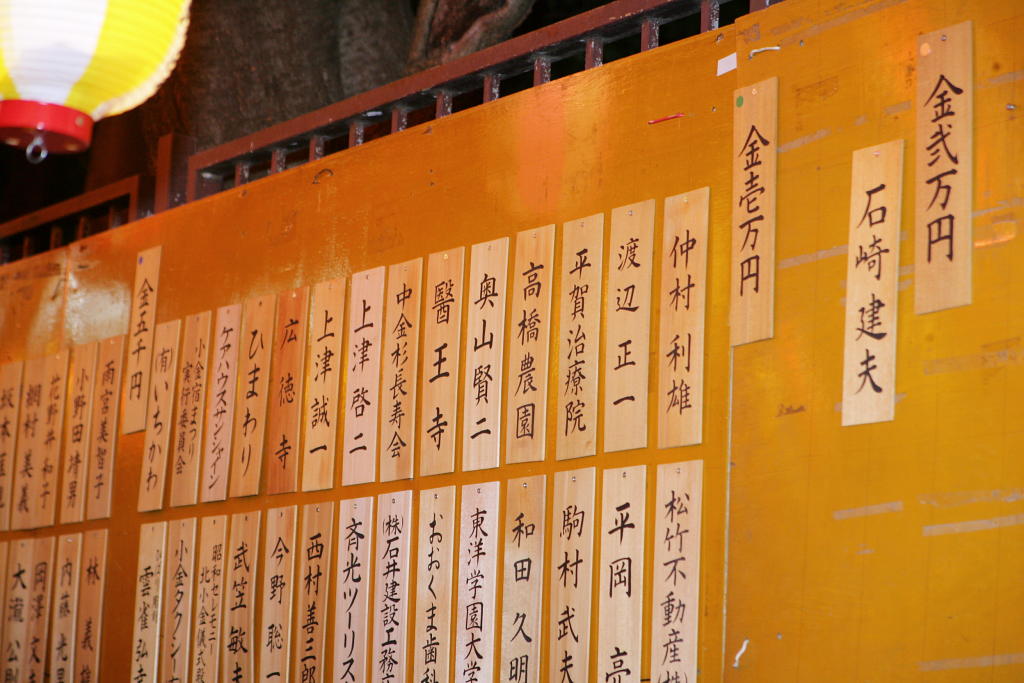 金弐万円
石崎建夫
金壱万円
仲村利雄
渡辺正一
平賀治療院
高橋農園
奥山賢二
醫王寺
中金杉長寿会
上津啓二
上津誠一
広徳寺
ひまわり
ケアハウスサンシャイン
小金宿まつり
実行委員会
(有)いちかわ
松竹不動産(株)
平岡亮
駒村武夫
和田久明
東洋学園大学
おおくま歯科
(株)石井建設工務店
斉光ツーリス
西村善三郎
今野聡一
武笠敏夫
昭和セレモニー
北小金儀式殿
小金タクシー
雲雀弘寺
金五千円
雨宮美智子
小野田靖男
花野井和子
綱村美義
坂本
林義雄
内藤光男
岡澤文
大瀧公